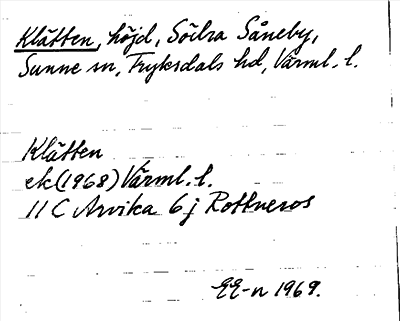 Klätten, höjd, Södra Såneby,
Sunne sn, Fryksdals hd, Värml. l.
Klätten
ek (1968) Värml. l.
11 C Arvika 6 j Rottneros
EE-n 1969.